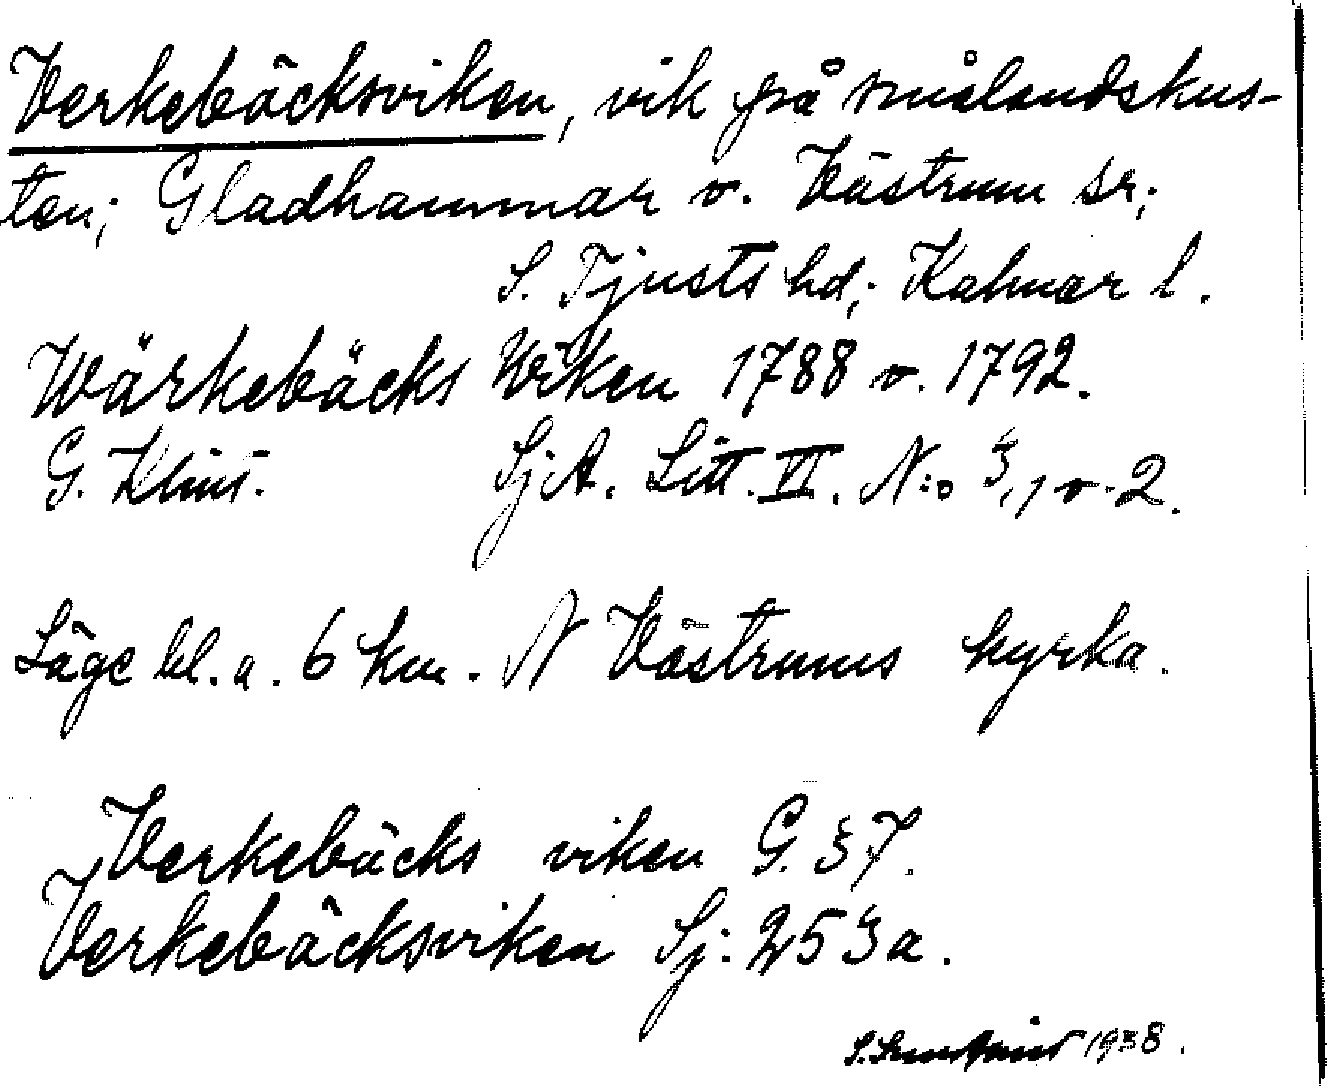 Verkebäcksviken, vik på smålandskus-
ten; Gladhammar o. Västrum sr;
S. Tjusts hd; Kalmar l.
Wärkebäcks Wiken 1788 o. 1792.
G. Klint. SjA. Litt. VI. N:o 3, 1 o. 2.
Läge bl. a. 6 km. N Västrums kyrka.
Verkebäcks viken G. 37.
Verkebäcksviken Sj: 253a.
1938.